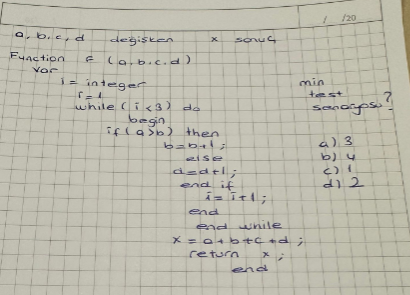 / /20
a, b, c, d değişken x sonuç
Function f (a, b, c, d)
var
i = integer
i = 1
while (i < 3) do
begin
if (a > b) then
b = b+1;
else
d = d+1;
end if
i = i+1;
end
end while
x = a + b + c + d;
return x;
end
min
test
senaryosu?
a) 3
b) 4
c) 1
d) 2